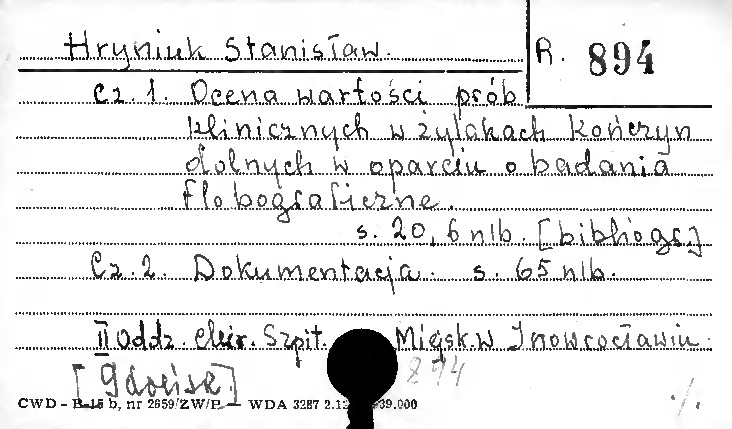 Hryniuk Stanisław.
R. 894
Cz. 1. Ocena wartości prób
klinicznych w żylakach kończyn
dolnych w oparciu o badania
flobograficzne.
s. 20, 6 nlb. [bibliogr.]
Cz. 2. Dokumentacja. s. 65 nlb.
II Oddz. chir. Szpit. Miejsk. w Inowrocławiu.
[Gdańsk] 894
CWD – B-15 b, nr 2659/ZW/P. — WDA 3287 2.12 39.000